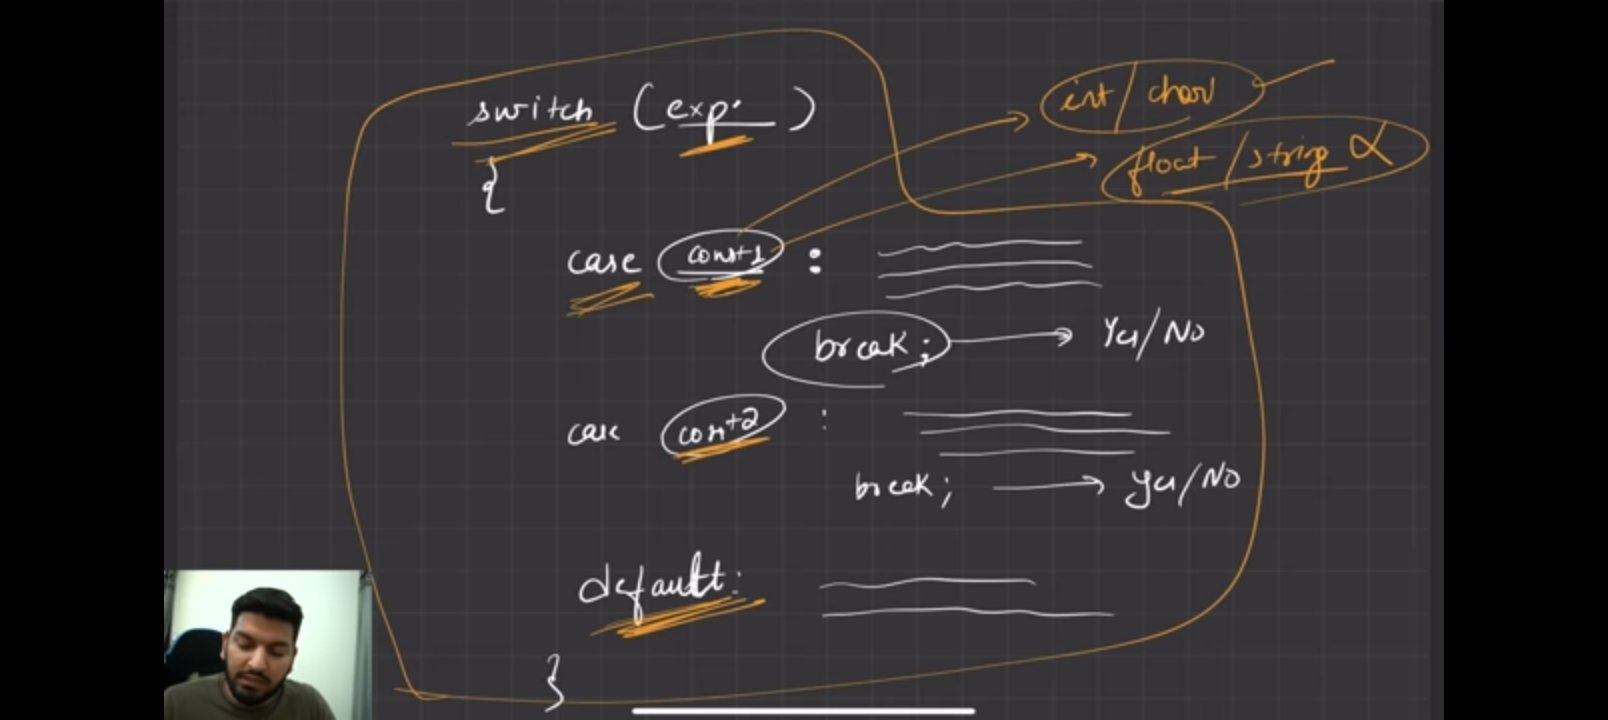 switch (exp.)
int / char
float / string
{
case const1 :
break; Yes/No
case const2 :
break; Yes/No
default:
}